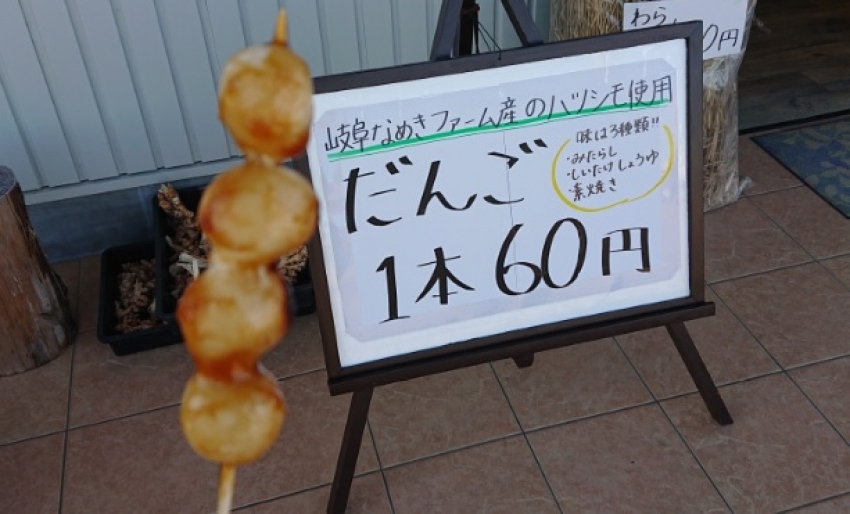 岐阜なめきファーム産のハツシモ使用
だんご
味は3種類"
・みたらし
・しいたけしょうゆ
・素焼き
1本60円
わら
0円